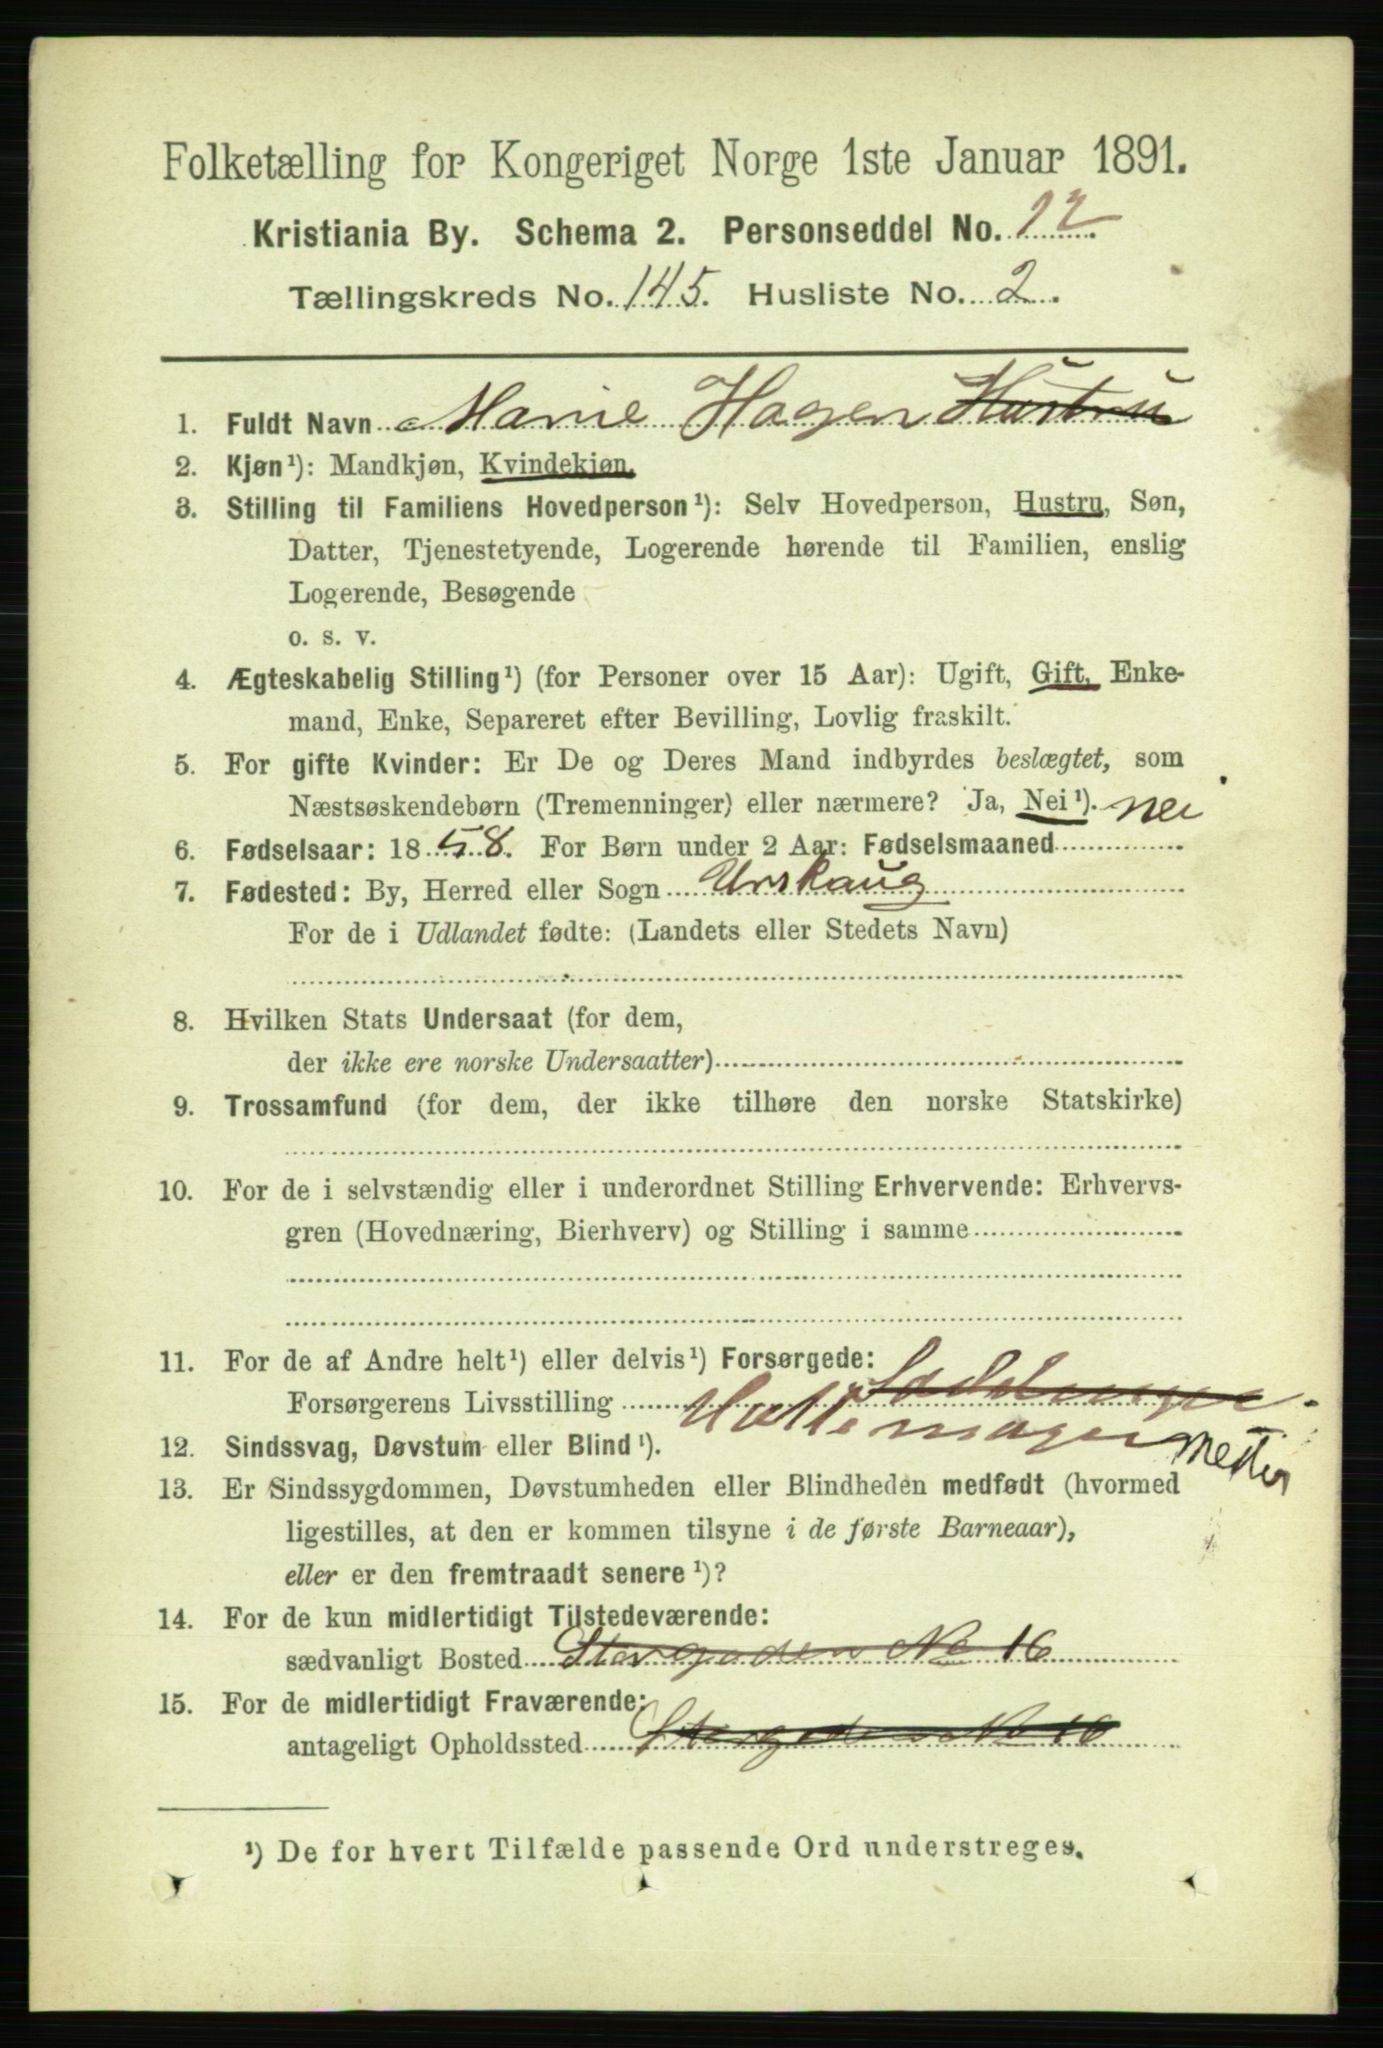 Folketælling for Kongeriget Norge 1ste Januar 1891.
Kristiania By. Schema 2. Personseddel No. 12
Tællingskreds No. 145. Husliste No. 2.
1. Fuldt Navn Marie Hagen Hustru
2. Kjøn¹): Mandkjøn, Kvindekjøn.
3. Stilling til Familiens Hovedperson¹): Selv Hovedperson, Hustru, Søn,
Datter, Tjenestetyende, Logerende hørende til Familien, enslig
Logerende, Besøgende
o. s. v.
4. Ægteskabelig Stilling¹) (for Personer over 15 Aar): Ugift, Gift, Enke-
mand, Enke, Separeret efter Bevilling, Lovlig fraskilt.
5. For gifte Kvinder: Er De og Deres Mand indbyrdes beslægtet, som
Næstsøskendebørn (Tremenninger) eller nærmere? Ja, Nei¹). nei
6. Fødselsaar: 1858. For Børn under 2 Aar: Fødselsmaaned
7. Fødested: By, Herred eller Sogn Urskaug
For de i Udlandet fødte: (Landets eller Stedets Navn)
8. Hvilken Stats Undersaat (for dem,
der ikke ere norske Undersaatter)
9. Trossamfund (for dem, der ikke tilhøre den norske Statskirke)
10. For de i selvstændig eller i underordnet Stilling Erhvervende: Erhvervs-
gren (Hovednæring, Bierhverv) og Stilling i samme
11. For de af Andre helt¹) eller delvis¹) Forsørgede:
Forsørgerens Livsstilling
12. Sindssvag, Døvstum eller Blind¹).
13. Er Sindssygdommen, Døvstumheden eller Blindheden medfødt (hvormed
ligestilles, at den er kommen tilsyne i de første Barneaar),
eller er den fremtraadt senere¹)?
14. For de kun midlertidigt Tilstedeværende:
sædvanligt Bosted Storgaden No 16
15. For de midlertidigt Fraværende:
antageligt Opholdssted Storgaden No 16
¹) De for hvert Tilfælde passende Ord understreges.